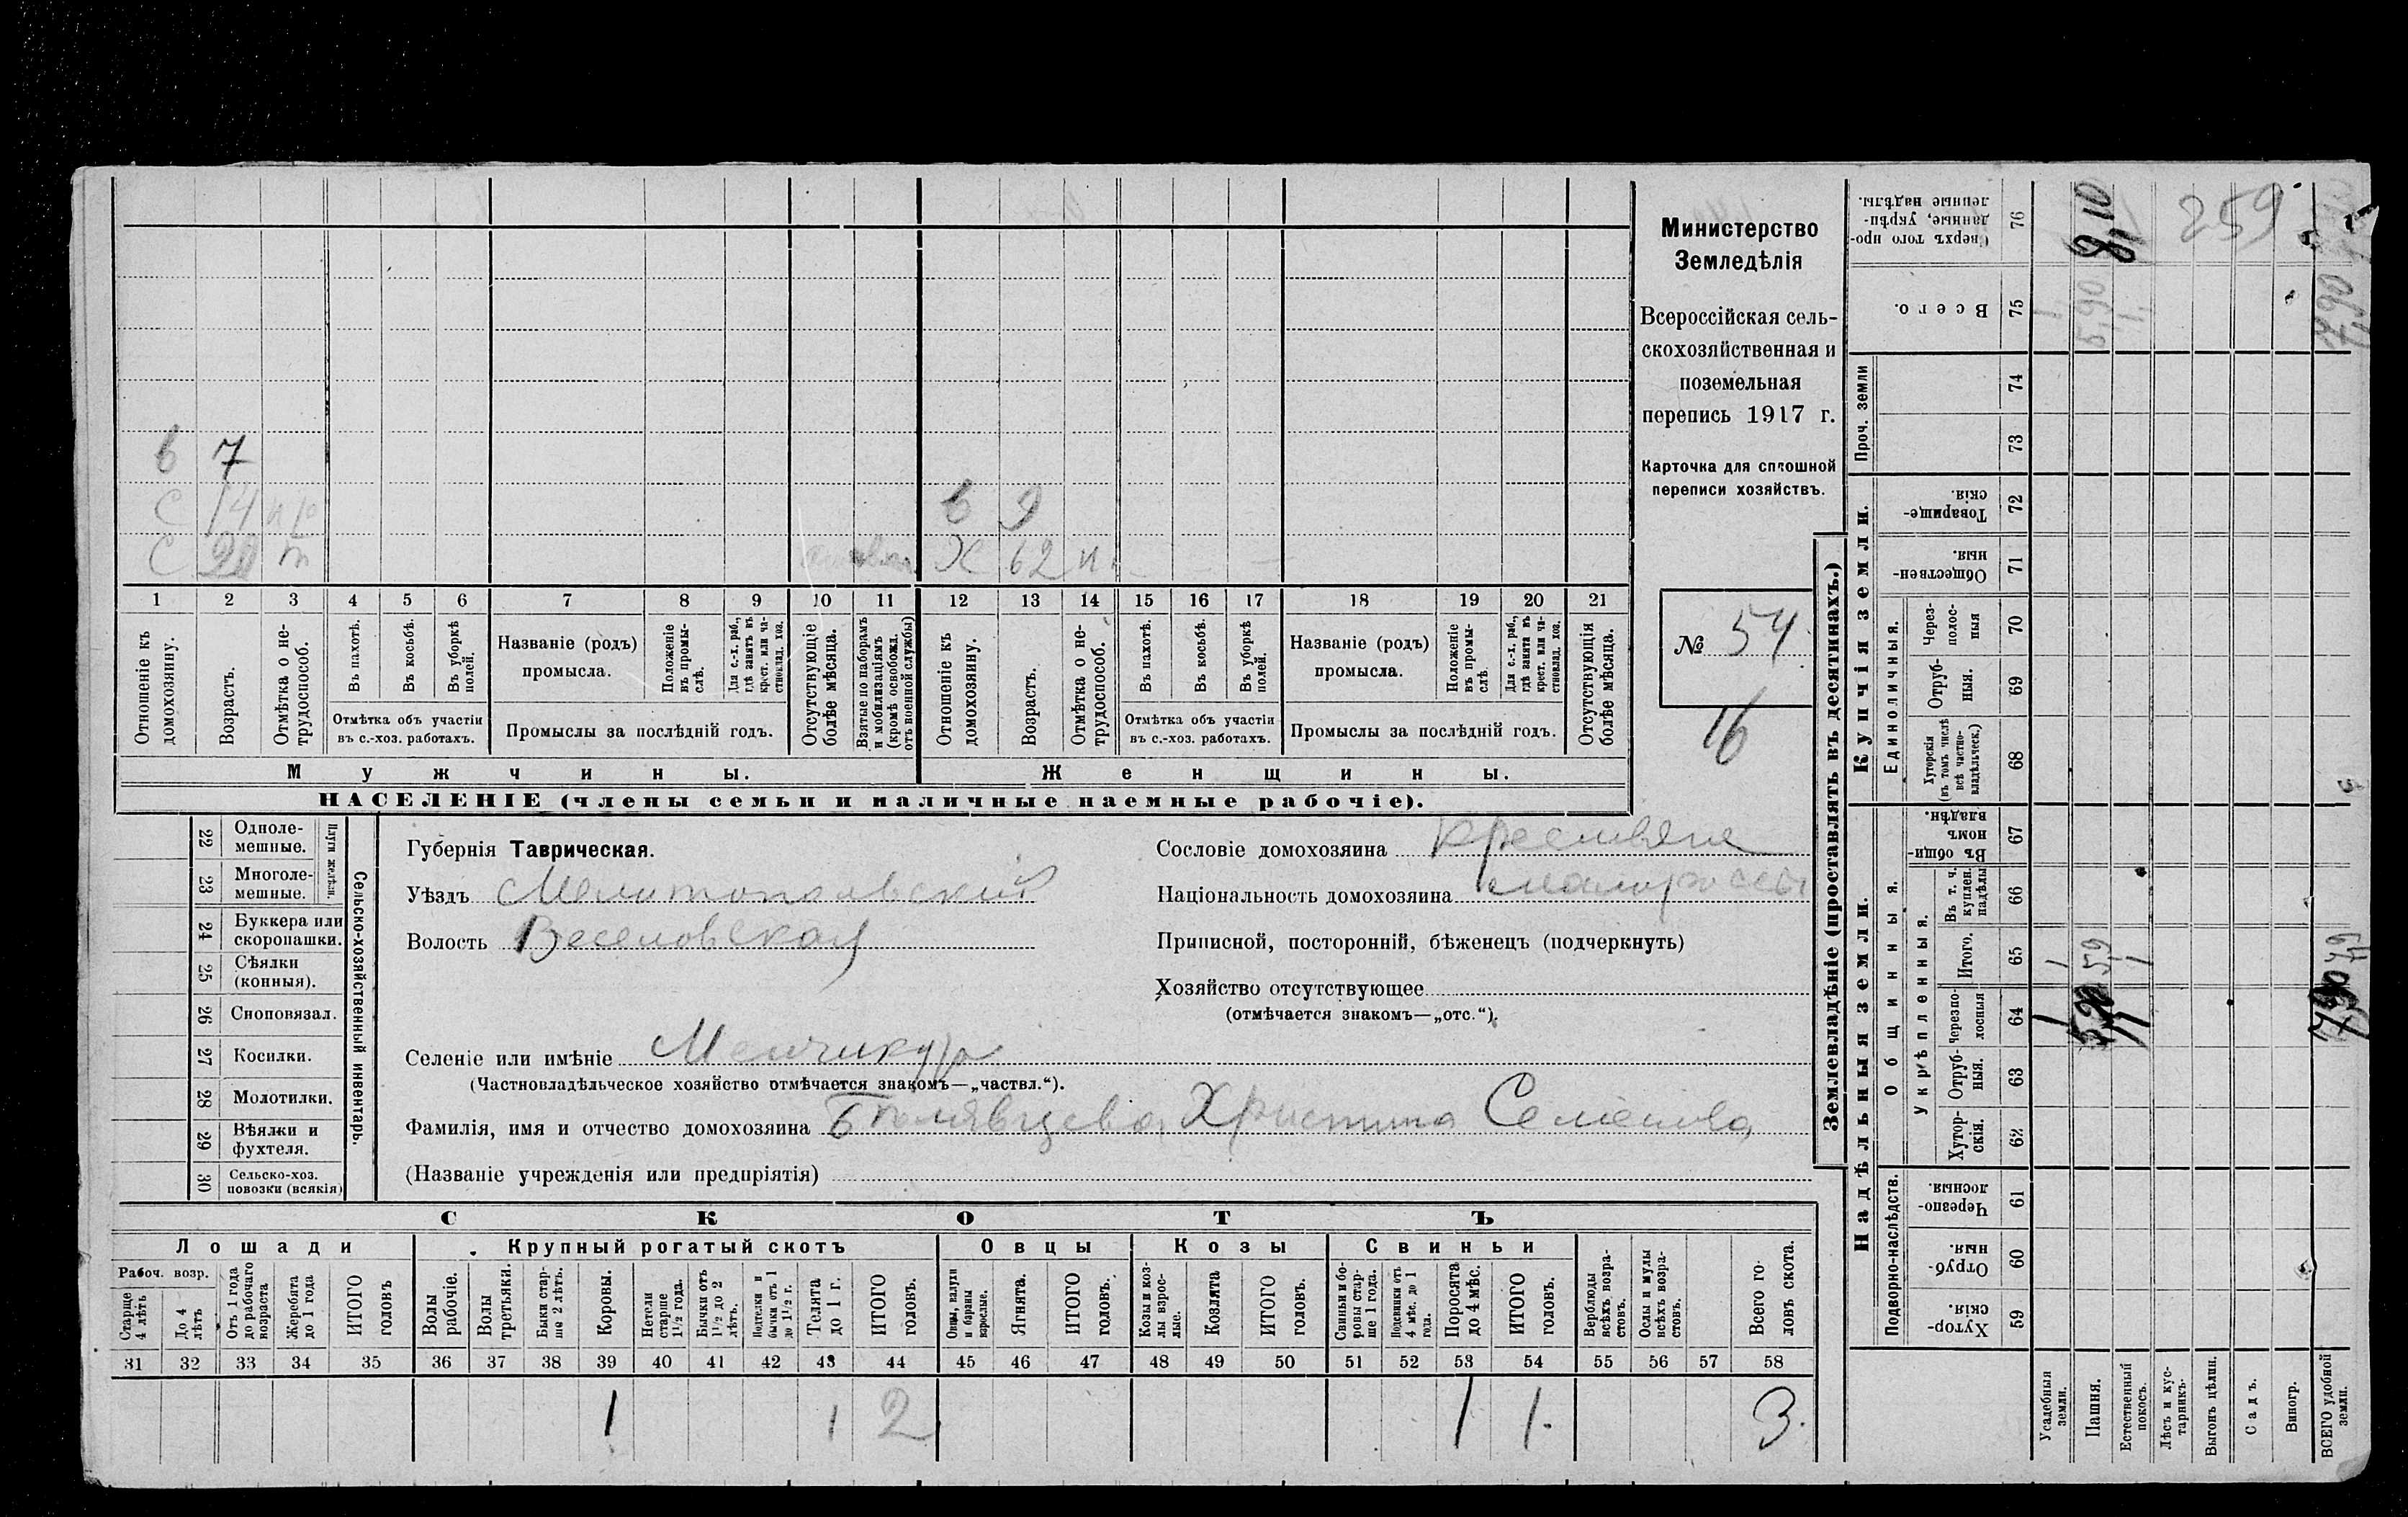 Министерство
Земледѣлія
Всероссійская сель-
скохозяйственная и
поземельная
перепись 1917 г.
Карточка для сплошной
переписи хозяйствъ.
№ 54
16
в 7 в 9
С 14 н/р
С 20 т Х 62 н.
1 2 3 4 5 6 7 8 9 10 11 12 13 14 15 16 17 18 19 20 21
Отношеніе къ домохозяину.
Возрастъ.
Отмѣтка о не-трудоспособ.
Въ пахотѣ.
Въ косьбѣ.
Въ уборкѣ полей.
Отмѣтка объ участіи въ с.-хоз. работахъ.
Названіе (родъ) промысла.
Положеніе въ промы-слѣ.
Для с.-х. раб., гдѣ занятъ въ крест. или ча-стновлад. хоз.
Промыслы за послѣдній годъ.
Отсутствующіе болѣе мѣсяца.
Взятые по наборамъ и мобилизаціямъ (кромѣ освобожд. отъ военной службы)
Отношеніе къ домохозяину.
Возрастъ.
Отмѣтка о не-трудоспособ.
Въ пахотѣ.
Въ косьбѣ.
Въ уборкѣ полей.
Отмѣтка объ участіи въ с.-хоз. работахъ.
Названіе (родъ) промысла.
Положеніе въ промы-слѣ.
Для с.-х. раб., гдѣ занята въ крест. или ча-стновлад. хоз.
Промыслы за послѣдній годъ.
Отсутствующія болѣе мѣсяца.
Мужчины. Женщины.
НАСЕЛЕНІЕ (члены семьи и наличные наемные рабочіе).
22 Одноле-мешные.
23 Многоле-мешные.
Плуги желѣзн.
24 Буккера или скоропашки.
25 Сѣялки (конныя).
26 Сноповязал.
27 Косилки.
28 Молотилки.
29 Вѣялки и фухтеля.
30 Сельско-хоз. повозки (всякія)
Сельско-хозяйственный инвентарь.
Губернія Таврическая.
Уѣздъ Мелитопольскій
Волость Веселовская
Сословіе домохозяина крестьяне
Національность домохозяина малороссы
Приписной, посторонній, бѣженецъ (подчеркнуть)
Хозяйство отсутствующее
(отмѣчается знакомъ—„отс.“).
Селеніе или имѣніе Менчикуръ
(Частновладѣльческое хозяйство отмѣчается знакомъ—„частвл.“).
Фамилія, имя и отчество домохозяина Христина Семенова
(Названіе учрежденія или предпріятія)
СКОТЪ
Лошади Крупный рогатый скотъ Овцы Козы Свиньи
Рабоч. возр.
Старше 4 лѣтъ
До 4 лѣтъ
Отъ 1 года до рабочаго возраста
Жеребята до 1 года
ИТОГО головъ
Волы рабочіе.
Волы третьяки.
Быки стар-ше 2 лѣтъ.
Коровы.
Нетели старше 1½ года.
Бычки отъ 1½ до 2 лѣтъ.
Подтелки и бычки отъ 1 до 1½ г.
Телята до 1 г.
ИТОГО головъ.
Овцы, валухи и бараны взрослые.
Ягнята.
ИТОГО головъ.
Козы и коз-лы взрос-лые.
Козлята
ИТОГО головъ.
Свиньи и бо-ровы стар-ше 1 года.
Подсвинки отъ 4 мѣс. до 1 года.
Поросята до 4 мѣс.
ИТОГО головъ.
Верблюды всѣхъ возра-стовъ.
Ослы и мулы всѣхъ возра-стовъ.
Всего го-ловъ скота.
31 32 33 34 35 36 37 38 39 40 41 42 43 44 45 46 47 48 49 50 51 52 53 54 55 56 57 58
1 1 2 1 1. 3.
Землевладѣніе (проставлять въ десятинахъ.)
Надѣльныя земли. Купчія земли. Проч. земли
Подворно-наслѣдств.
Общинныя.
Укрѣпленныя.
Единоличныя.
Хутор-скія. 59
Отруб-ныя. 60
Черезпо-лосныя. 61
Хутор-скія. 62
Отруб-ныя. 63
Черезпо-лосныя 64
Итого. 65
Въ т. ч. куплен. надѣлы 66
Въ общи-номъ владѣн. 67
Хуторскія (въ томъ числѣ всѣ частно-владѣльческ.) 68
Отруб-ныя. 69
Через-полос-ныя 70
Обществен-ныя. 71
Товарище-скія. 72
73
74
Всего. 75
Сверхъ того про-данные, укрѣп-ленные надѣлы. 76
Усадебныя земли.
Пашня.
Естественный покосъ.
Лѣсъ и кус-тарникъ.
Выгонъ цѣлин.
Садъ.
Виногр.
ВСЕГО удобной земли.
1 5,9 1 7,9
1 5,90 1 7,90
259